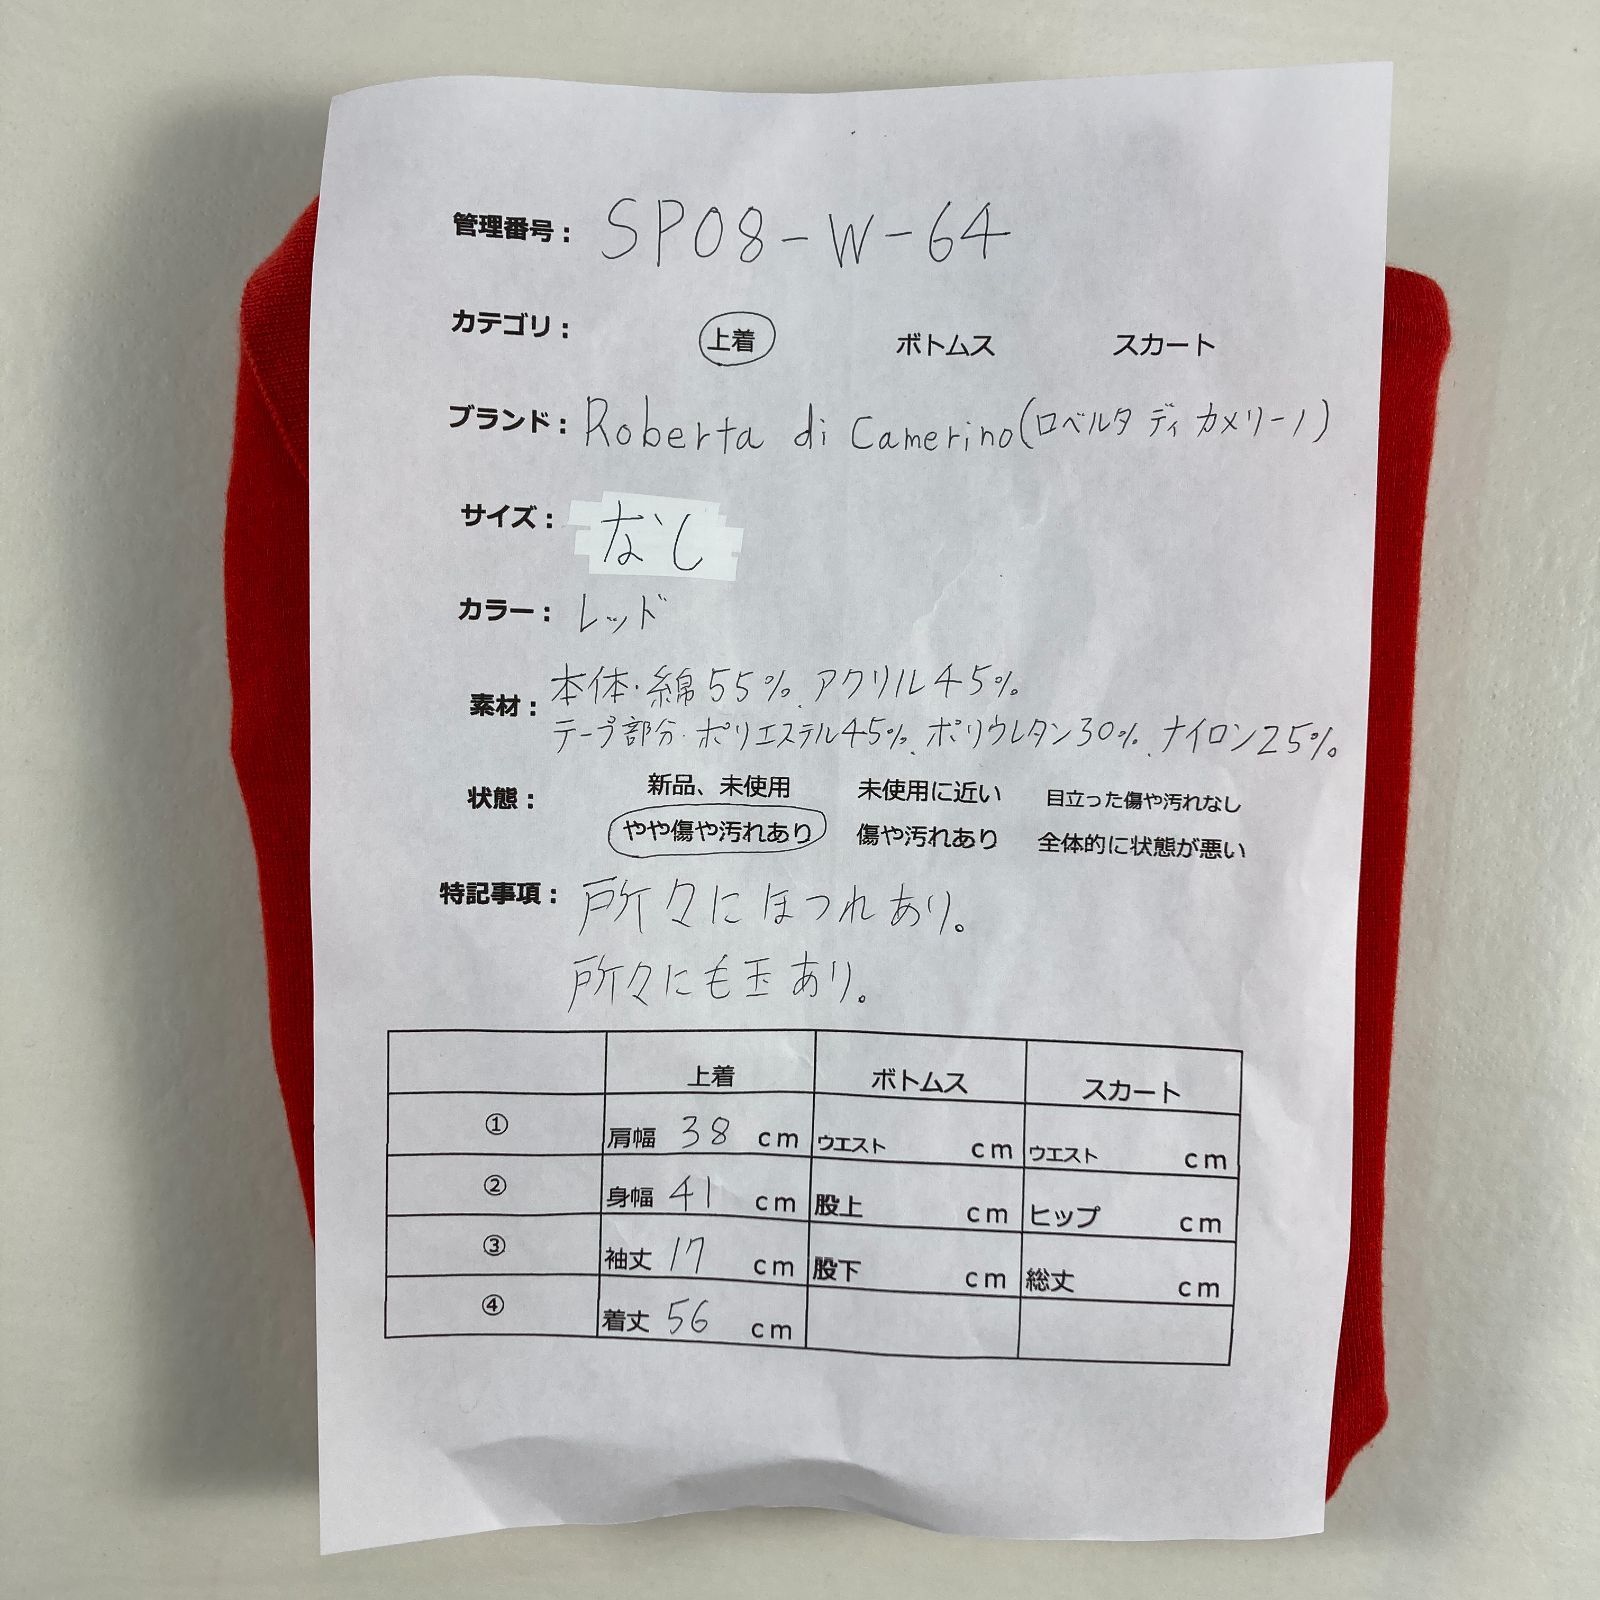 管理番号: SP08-W-64
カテゴリ: 上着 ボトムス スカート
ブランド: Roberta di Camerino(ロベルタ ディ カメリーノ)
サイズ: なし
カラー: レッド
素材: 本体・綿55%、アクリル45%
テープ部分・ポリエステル45%、ポリウレタン30%、ナイロン25%
状態: 新品、未使用 未使用に近い 目立った傷や汚れなし
やや傷や汚れあり 傷や汚れあり 全体的に状態が悪い
特記事項: 所々にほつれあり。
所々にも玉あり。
上着 ボトムス スカート
① 肩幅 38 cm ウエスト cm ウエスト cm
② 身幅 41 cm 股上 cm ヒップ cm
③ 袖丈 17 cm 股下 cm 総丈 cm
④ 着丈 56 cm